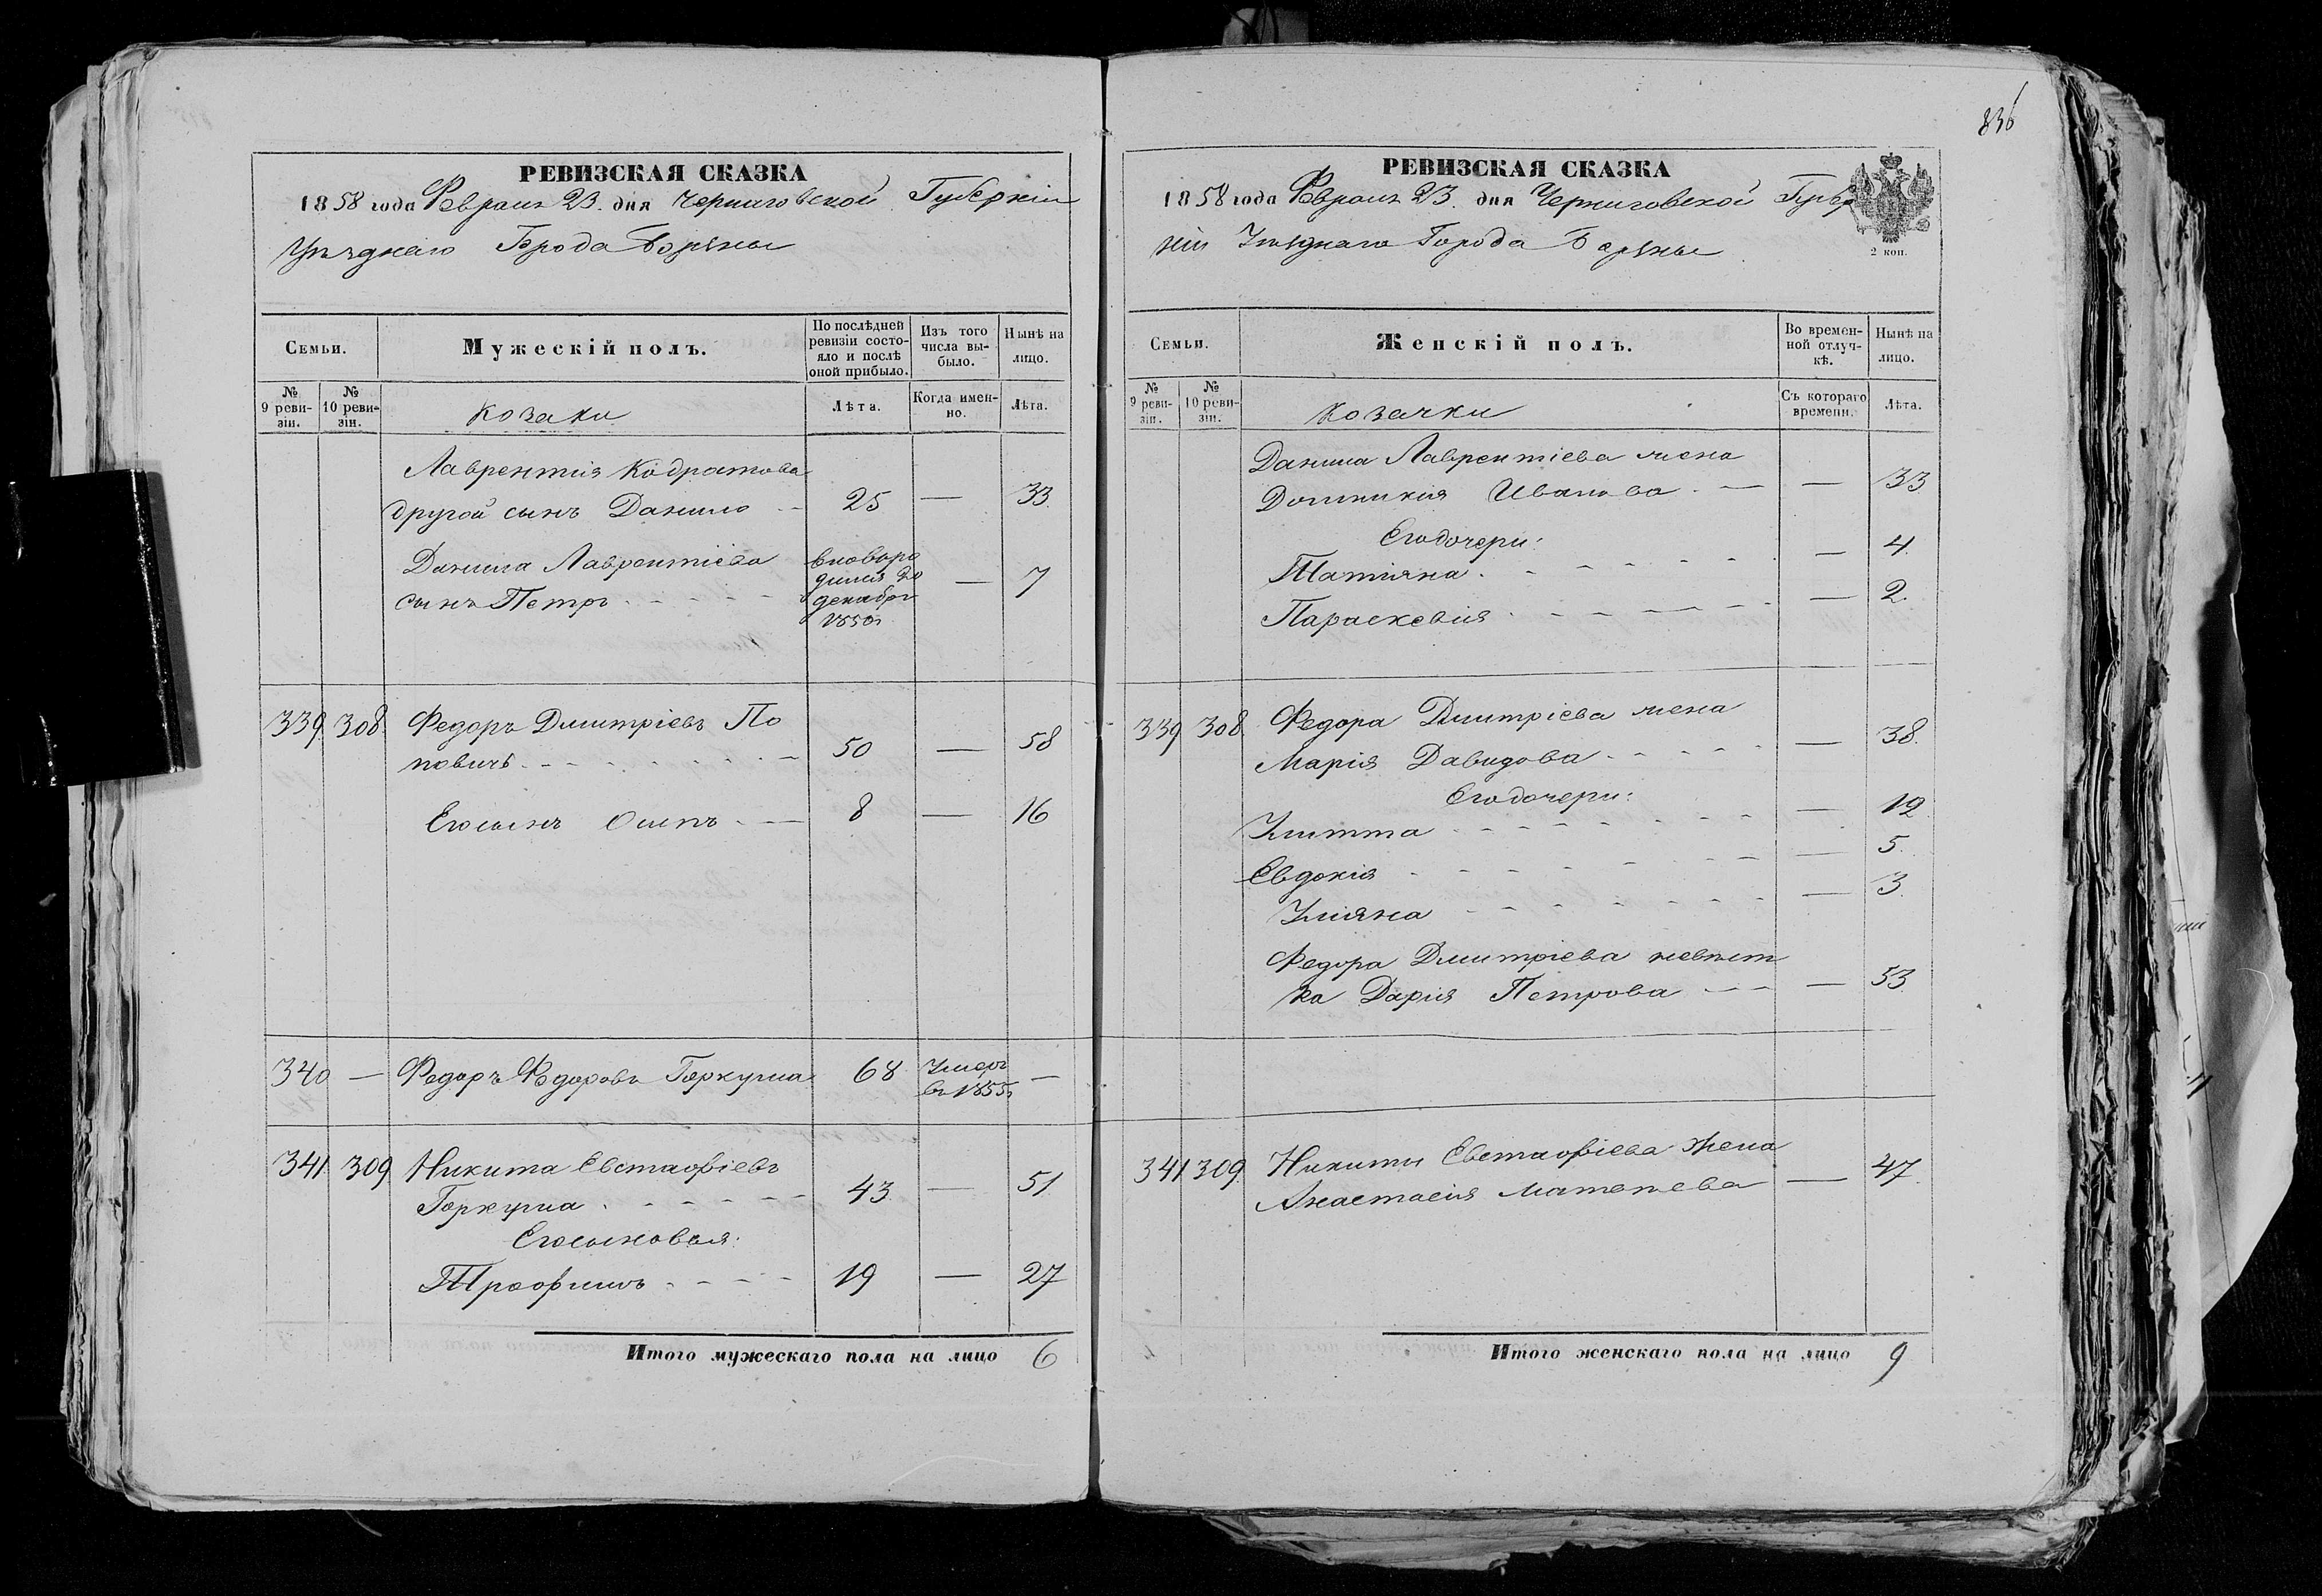 836
РЕВИЗСКАЯ СКАЗКА
1858 года Февраля 23. дня Черниговской Губерніи
Уѣзднаго Города Борзны
Семьи.
Мужескій полъ.
По послѣдней ревизіи состояло и послѣ оной прибыло.
Изъ того числа выбыло.
Нынѣ на лицо.
№ 9 ревизіи.
№ 10 ревизіи.
Козаки
Лѣта.
Когда именно.
Лѣта.
Лаврентія Кодратова
другой сынъ Данило 25 — 33
Данила Лаврентіева
сынъ Петръ — 7
вноворо
дился
декабря
1850г
339 308 Федоръ Дмитріевъ По
повичъ 50 — 58
Его сынъ Осипъ 8 — 16
340 — Федоръ Федоровъ Горкуша 68 Умеръ
въ 1855г —
341 309 Никита Евстафіевъ
Горкуша 43 — 51
Его сыновья:
Трофимъ 19 — 27
Итого мужескаго пола на лицо 6
РЕВИЗСКАЯ СКАЗКА
1858 года Февраля 23. дня Черниговской Губер
ніи Уѣзднаго Города Борзны
2 коп.
Семьи.
Женскій полъ.
Во временной отлучкѣ.
Нынѣ на лицо.
№ 9 ревизіи.
№ 10 ревизіи.
Козачки
Съ котораго времени.
Лѣта.
Данила Лаврентіева жена
Домникія Иванова — 33
Его дочери:
Татіяна — 4
Параскевія — 2.
339 308 Федора Дмитріева жена
Марія Давидова — 38.
Его дочери:
Улитта — 12
Евдокія — 5.
Уліяна — 3.
Федора Дмитріева невѣст
ка Дарія Петрова — 53
341 309 Никиты Евстафіева жена
Анастасія Матвѣева — 47.
Итого женскаго пола на лицо 9